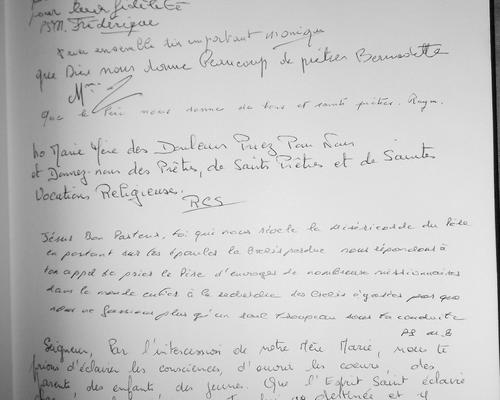 pour leur fidélité
Frédérique
ensemble très important Monique
que Dieu nous donne beaucoup de prêtres Bernadette
Mme
Que le Père nous donne de bons et saints prêtres. Raym.
Marie Mère des Douleurs Priez Pour Nous
et Donnez-nous des Prêtres, de Saints Prêtres et de Saintes
Vocations Religieuses.
RCS
Jésus Bon Pasteur, toi qui nous révèle la miséricorde du Père
en portant sur les épaules la brebis perdue nous répondons à
ton appel de prier le Père d'envoyer de nombreux missionnaires
dans le monde entier à la recherche des brebis égarées pour que
nous ne fassions plus qu'un seul troupeau sous ta conduite
Seigneur, Par l'intercession de notre Mère Marie, nous te
prions d'éclairer les consciences, d'ouvrir les coeurs, des
parents, des enfants, des jeunes. Que l'Esprit Saint éclaire